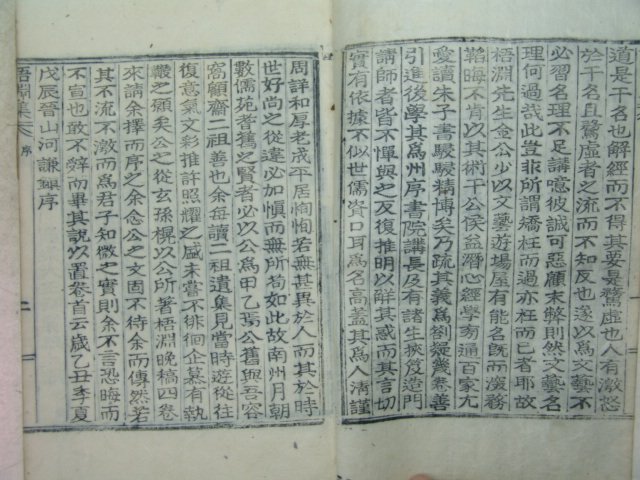 道是干名也解經而不得其要是騖虛也人有激慾
於干名且騖虛者之流而不知反也遂以爲文藝不
必習名理不足講噫彼誠可惡顧末弊則然文藝名
理何過哉此豈非所謂矯枉而過亦枉而已者耶故
梧淵先生金公少以文藝遊塲屋有能名旣而深務
韜晦不肯以其術干公侯益潛心經學旁通百家尤
愛讀朱子書駸駸精博矣乃疏其義爲劄疑幾卷善
引進後學其爲州序書院講長及有諸生挾度造門
請師者皆不憚與之反復推明以解其惑而其言切
實有依據不似世儒資口耳爲名高蓋其爲人淸謹
周詳和厚老成平居恂恂若無甚異於人而其於時
世好尙之從違必加愼而無所苟如此故南州月朝
數儒苑耆舊之賢者必以公爲甲乙焉公舊與吾容
窩顧齋二祖善也余每讀二祖遺集見當時遊從往
復意氣文彩推許照耀之盛未嘗不徘徊企慕有執
鞭之願矣公之從玄孫榥以公所著梧淵晩稿四卷
來請余擇而序之余念公之文固不待余而傳然若
其不流不激而爲君子知微之實則余不言恐晦而
不宣也敢不辭而畢其說以置卷首云歲乙丑季夏
戊辰晉山河謙鎭序
梧淵集 卷 序 二